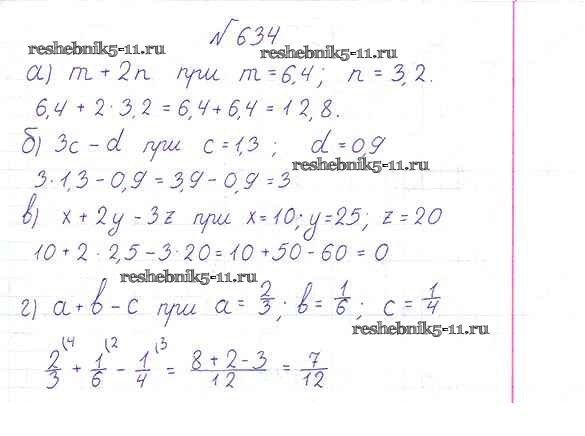 № 634
reshebnik5-11.ru
reshebnik5-11.ru
а) m + 2n при m = 6,4; n = 3,2.
6,4 + 2·3,2 = 6,4 + 6,4 = 12,8.
б) 3c – d при c = 1,3; d = 0,9
reshebnik5-11.ru
3·1,3 – 0,9 = 3,9 – 0,9 = 3
в) x + 2y – 3z при x = 10; y = 25; z = 20
10 + 2·2,5 – 3·20 = 10 + 50 – 60 = 0
reshebnik5-11.ru
г) a + b – c при a = 2/3; b = 1/6; c = 1/4
reshebnik5-11.ru
2/3 (4 + 1/6 (2 – 1/4 (3 = 8 + 2 – 3/12 = 7/12